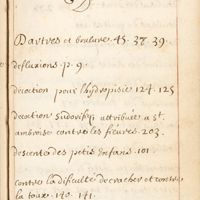 D
Dartres et brulure. 45. 38. 39.
defluxions. p. 9.
decoction pour l'hydropisie 124. 125
decoction sudorifiq attribuée a st.
ambroise contre les fieures. 203.
descente des petis enfans. 101
contre la dificulté de cracher et contre
la toux. 140. 141.